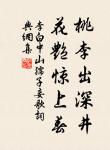 桃李出深井
花艷驚上春
李白中山孺子妾歌詞
典網集